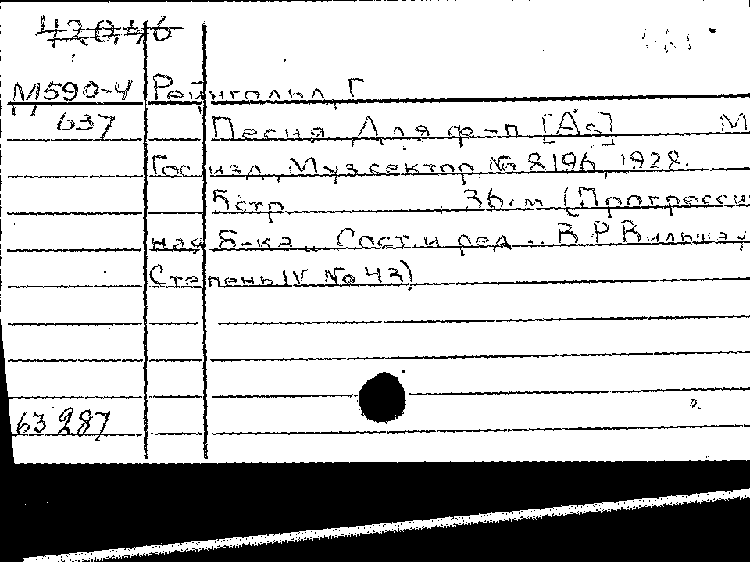 42046
М590-4 Рейнгольд, Г.
637 Песня. Для ф-п. [As] М.
Гос. изд., Муз. сектор, № 8196, 1928.
5 стр. 36 м. (Прогрессив
ная б-ка.. Сост. и ред... В. Р. Вильшау
Степень IV № 43)
63287